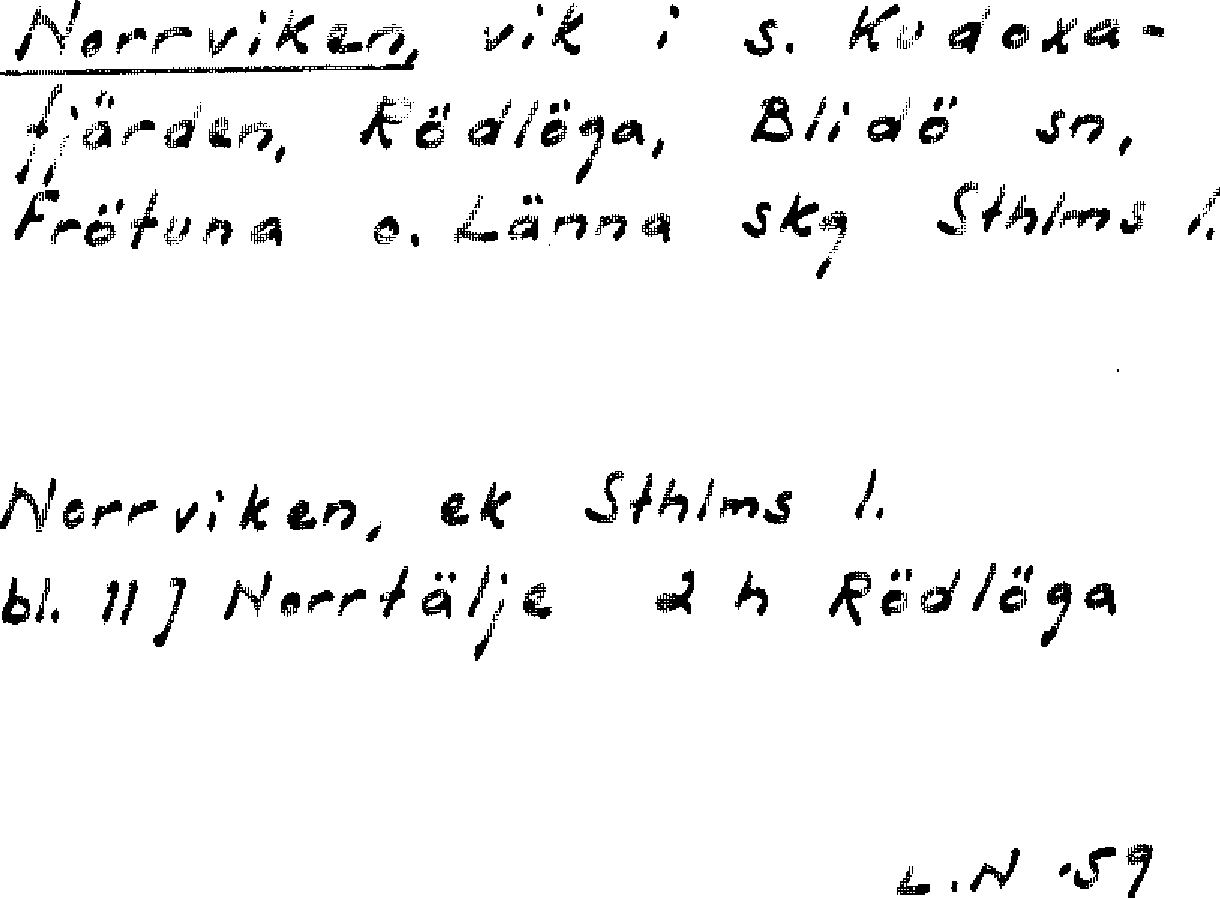 Norrviken, vik i s. Kudoxa-
fjärden, Rödlöga, Blidö sn,
Frötuna o. Länna skg Sthlms l.
Norrviken, ek Sthlms l.
bl. 11 J Norrtälje 2 h Rödlöga
L.N ·59